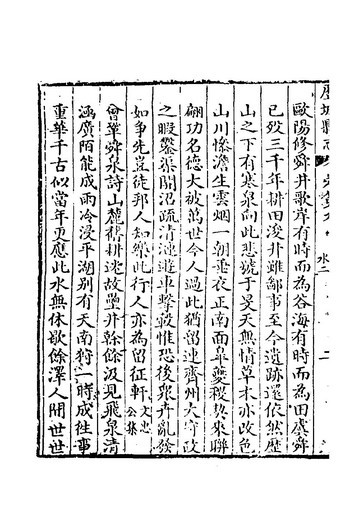 歐陽修舜井歌岸有時而為谷海有時而為田虞舜
已歿三千年耕田浚井雖鄙事至今遺跡還依然歷
山之下有寒泉向此悲號于旻天無情草木亦改色
山川慘澹生雲烟一朝垂衣正南面皐夔稷契來聯
翩功名德大被萬世今人過此猶留連齊州太守政
之暇鑿渠開沼疏清漣遊車擊轂惟恐後衆卉亂發
如爭先豈徒邦人知樂此行人亦為留征軒 文忠公集
曾鞏舜泉詩山麓耕耘逺故壟井幹餘汲見飛泉清
涵廣陌能成雨冷浸平湖别有天南狩一時成往事
重華千古似當年更應此水無休歇餘澤人間世世